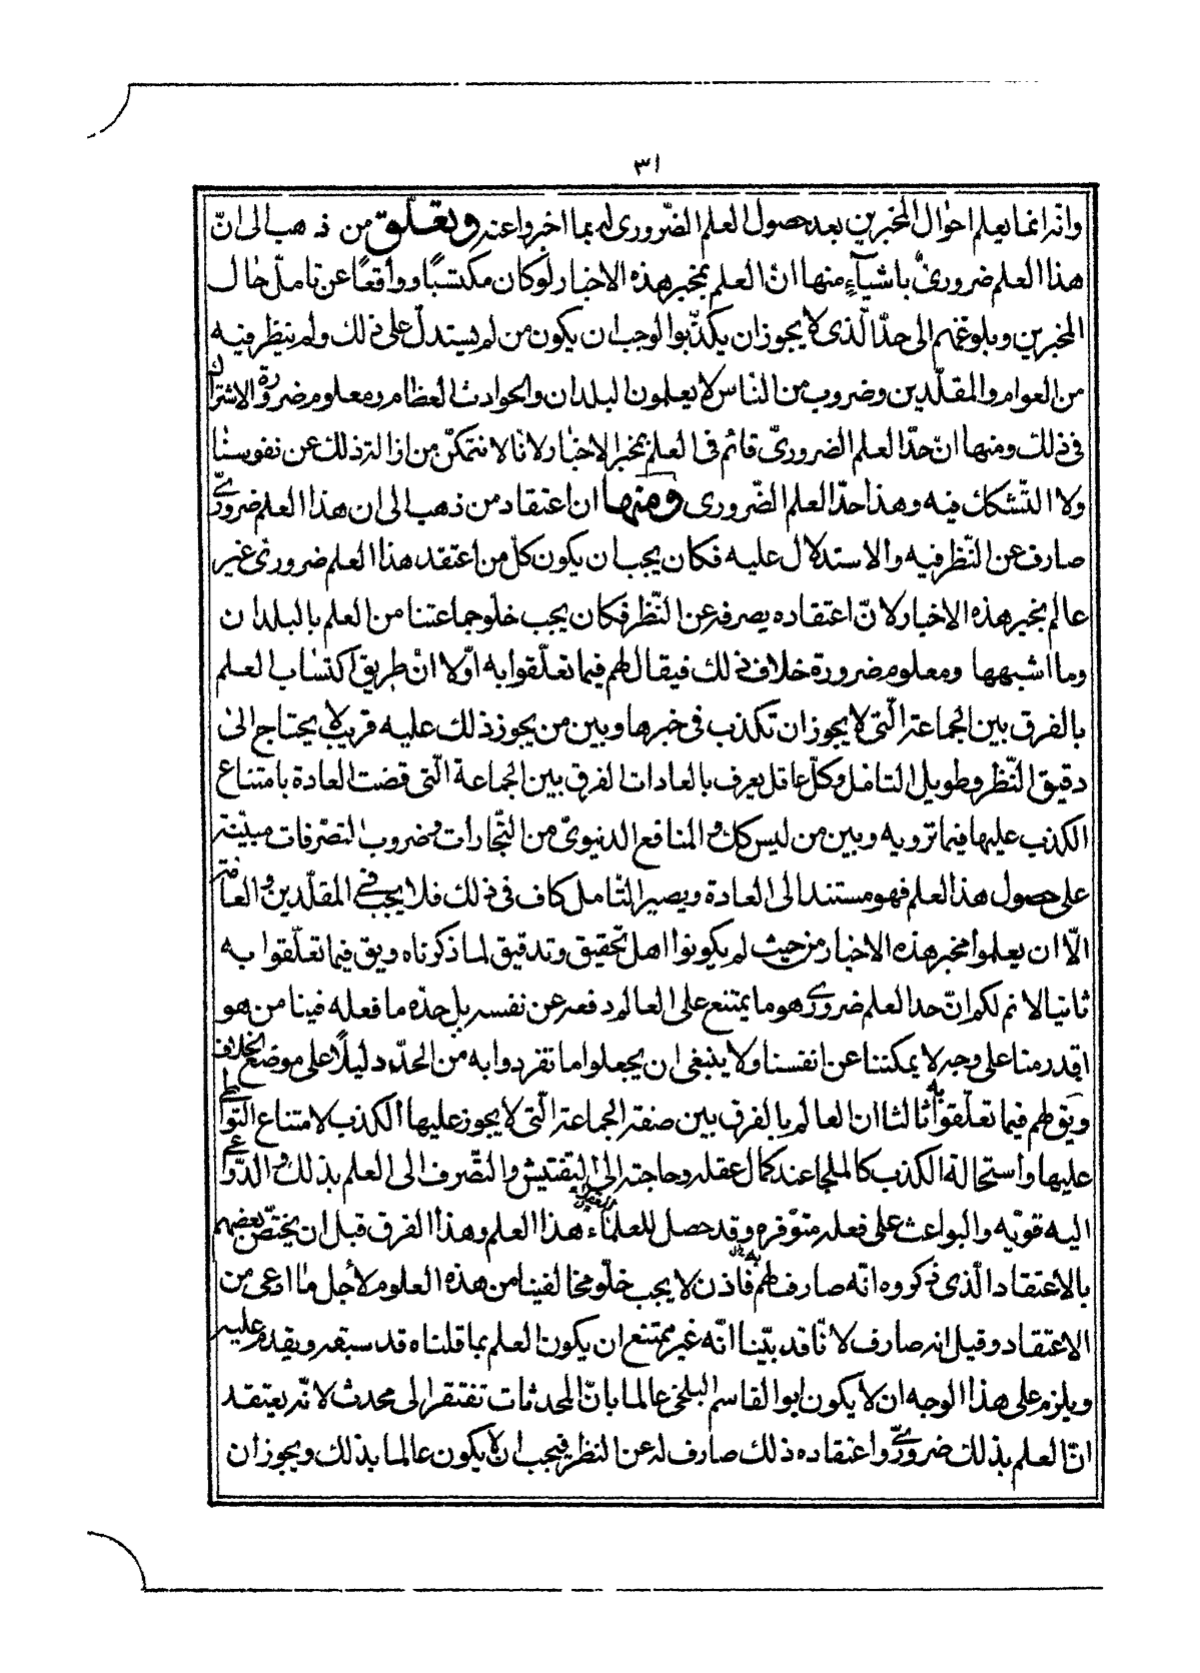 ٣١
وانّه انما يعلم احوال المخبرين بعد حصول العلم الضّرورى له بما اخبروا عنه وتعلّق من ذهب الى انّ
هذا العلم ضرورىّ باشيآءٍ منها انّ العلم بمخبر هذه الاخبار لو كان مكتسبًا وواقعًا عن تامل حال
المخبرين وبلوغهم الى حدّ الّذى لا يجوز ان يكذّبوا لوجب ان يكون من لم يستدلّ على ذلك ولم ينظر فيه
من العوام والمقلّدين وضروب من النّاس لا يعلمون البلدان والحوادث العظام ومعلوم ضرورة الاشتراك
فى ذلك ومنها انّ حدّ العلم الضرورىّ قائم فى العلم بمخبر الاخبار لانّا لا نتمكّن من ازالة ذلك عن نفوسنا
ولا التّشكك فيه وهذا حدّ العلم الضّرورى ومنها ان اعتقاد من ذهب الى ان هذا العلم ضرورىّ
صارف عن النّظر فيه والاستدلال عليه فكان يجب ان يكون كلّ من اعتقد هذا العلم ضرورىّ غير
عالم بمخبر هذه الاخبار لانّ اعتقاده يصرفه عن النّظر فكان يجب خلّو جماعتنا من العلم بالبلدان
وما اشبهها ومعلوم ضرورة خلاف ذلك فيقال لهم فيما تعلّقوا به اوّلا انّ طريق اكتساب العلم
بالفرق بين الجماعة الّتى لا يجوز ان تكذب فى خبرها وبين من يجوز ذلك عليه قريب لا يحتاج الى
دقيق النّظر وطويل التامّل وكلّ عاقل يعرف بالعادات الفرق بين الجماعة الّتى قضت العادة بامتناع
الكذب عليها فيما ترويه وبين من ليس كك والمنافع الدنيوىّ من التّجارات وضروب التصرّفات مبنيّة
على حصول هذا العلم فهو مستند الى العادة ويصير التّامل كاف فى ذلك فلا يجب فى المقلّدين والعامّة
الّا ان يعلموا مخبر هذه الاخبار من حيث لم يكونوا اهل تحقيق وتدقيق لما ذكرناه ويق فيما تعلّقوا به
ثانيا لا نم لكم انّ حد العلم ضرورىّ هو ما يمتنع على العالم دفعه عن نفسه بل حدّه ما فعله فينا من هو
اقدر منا على وجه لا يمكننا عن انفسنا ولا ينبغى ان يجعلوا ما تفردوا به من الحدّ دليلًا على موضع الخلاف
ويق لهم فيما تعلّقوا به ثالثا ان العالم بالفرق بين صفة الجماعة الّتى لا يجوز عليها الكذب لامتناع التواطى
عليها واستحالة الكذب كالملجا عند كمال عقله وحاجته الى التفتيش والتصّرف الى العلم بذلك والدّواعى
اليه قويّه والبواعث على فعله متوّفره وقد حصل للعلماء هذا العلم وهذا الفرق قبل ان يختصّ بعضهم
بالاعتقاد الّذى ذكروه انّه صارف لهم فاذن لا يجب خلّو مخالفينا من هذه العلوم لاجل ما ادعى من
الاعتقاد وقيل انه صارف لانّا قد بيّنا انّه غير ممتنع ان يكون العلم بما قلناه قد سبقه ويقدم عليه
ويلزم على هذا الوجه ان لا يكون ابو القاسم البلخى عالما بانّ المحدثات تفتقر الى محدث لانّه يعتقد
انّ العلم بذلك ضرورىّ واعتقاده ذلك صارف له عن النظر فيجب ان لا يكون عالما بذلك ويجوز ان